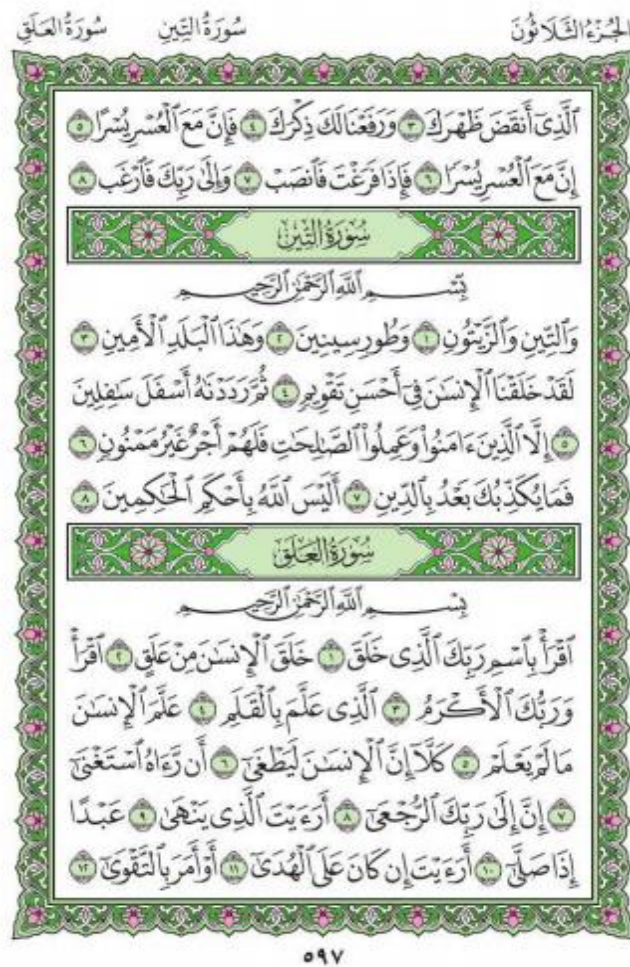 الجُزْءُ الثَّلَاثُونَ سُورَةُ التِّينِ سُورَةُ العَلَقِ
ٱلَّذِىٓ أَنقَضَ ظَهۡرَكَ ٣ وَرَفَعۡنَا لَكَ ذِكۡرَكَ ٤ فَإِنَّ مَعَ ٱلۡعُسۡرِ يُسۡرًا ٥
إِنَّ مَعَ ٱلۡعُسۡرِ يُسۡرٗا ٦ فَإِذَا فَرَغۡتَ فَٱنصَبۡ ٧ وَإِلَىٰ رَبِّكَ فَٱرۡغَب ٨
سُورَةُ التِّينِ
بِسۡمِ ٱللَّهِ ٱلرَّحۡمَٰنِ ٱلرَّحِيمِ
وَٱلتِّينِ وَٱلزَّيۡتُونِ ١ وَطُورِ سِينِينَ ٢ وَهَٰذَا ٱلۡبَلَدِ ٱلۡأَمِينِ ٣
لَقَدۡ خَلَقۡنَا ٱلۡإِنسَٰنَ فِىٓ أَحۡسَنِ تَقۡوِيمٖ ٤ ثُمَّ رَدَدۡنَٰهُ أَسۡفَلَ سَٰفِلِينَ
٥ إِلَّا ٱلَّذِينَ ءَامَنُوا۟ وَعَمِلُوا۟ ٱلصَّٰلِحَٰتِ فَلَهُمۡ أَجۡرٌ غَيۡرُ مَمۡنُونٖ ٦
فَمَا يُكَذِّبُكَ بَعۡدُ بِٱلدِّينِ ٧ أَلَيۡسَ ٱللَّهُ بِأَحۡكَمِ ٱلۡحَٰكِمِينَ ٨
سُورَةُ العَلَقِ
بِسۡمِ ٱللَّهِ ٱلرَّحۡمَٰنِ ٱلرَّحِيمِ
ٱقۡرَأۡ بِٱسۡمِ رَبِّكَ ٱلَّذِى خَلَقَ ١ خَلَقَ ٱلۡإِنسَٰنَ مِنۡ عَلَقٍ ٢ ٱقۡرَأۡ
وَرَبُّكَ ٱلۡأَكۡرَمُ ٣ ٱلَّذِى عَلَّمَ بِٱلۡقَلَمِ ٤ عَلَّمَ ٱلۡإِنسَٰنَ
مَا لَمۡ يَعۡلَمۡ ٥ كَلَّآ إِنَّ ٱلۡإِنسَٰنَ لَيَطۡغَىٰٓ ٦ أَن رَّءَاهُ ٱسۡتَغۡنَىٰٓ
٧ إِنَّ إِلَىٰ رَبِّكَ ٱلرُّجۡعَىٰٓ ٨ أَرَءَيۡتَ ٱلَّذِى يَنۡهَىٰ ٩ عَبۡدًا
إِذَا صَلَّىٰٓ ١٠ أَرَءَيۡتَ إِن كَانَ عَلَى ٱلۡهُدَىٰٓ ١١ أَوۡ أَمَرَ بِٱلتَّقۡوَىٰٓ ١٢
٥٩٧